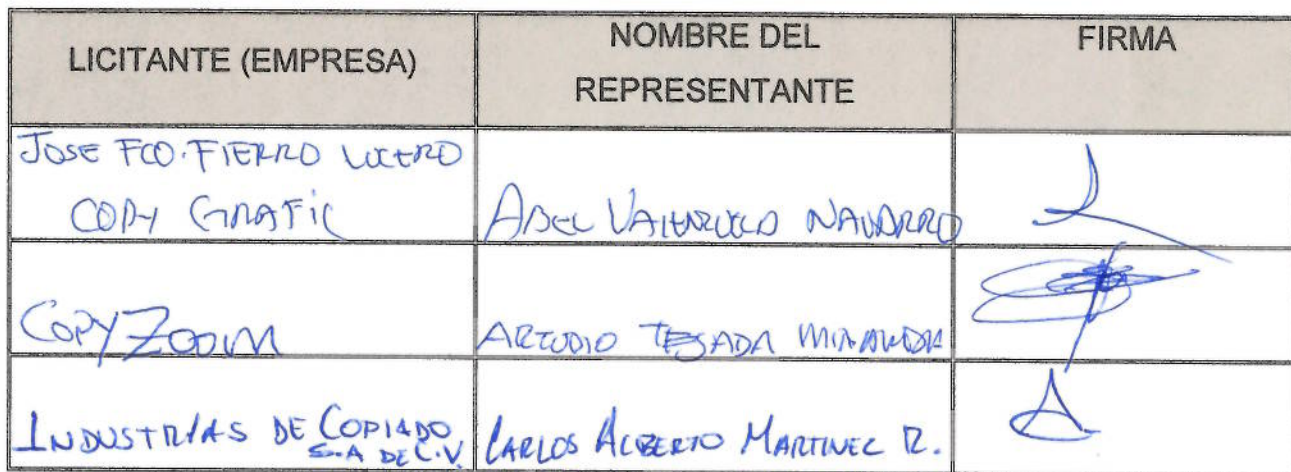 LICITANTE (EMPRESA)
NOMBRE DEL
REPRESENTANTE
FIRMA
JOSE FCO. FIERRO LUCERO
COPY GRAFIC
ABEL VALENZUELA NAVARRO
COPY ZOOM
TEJADA MIRANDA
INDUSTRIAS DE COPIADO
S.A DE C.V.
CARLOS ALBERTO MARTINEZ R.